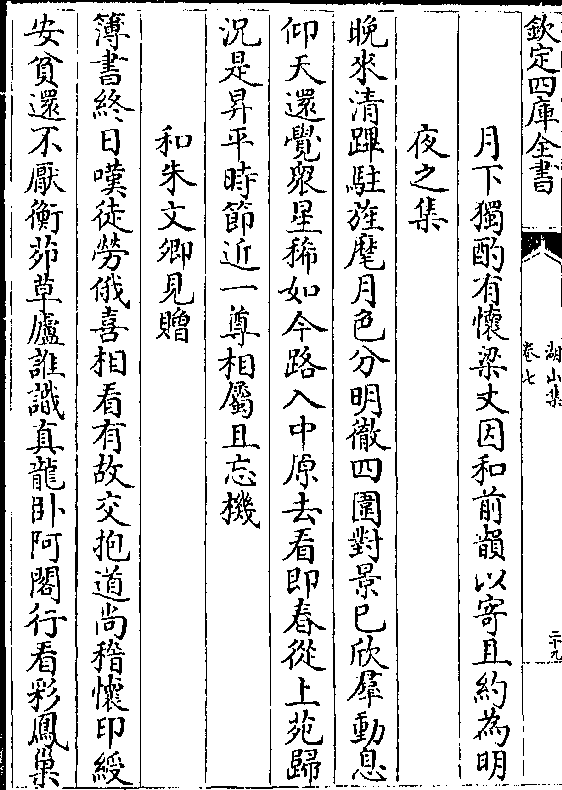 欽定四庫全書
湖山集
卷七
二十九
月下獨酌有懷梁丈因和前韻以寄且約為明
夜之集
晚來清蹕駐旌麾月色分明徹四圍對景已欣羣動息
仰天還覺衆星稀如今路入中原去看即春從上苑歸
況是昇平時節近一尊相屬且忘機
和朱文卿見贈
簿書終日嘆徒勞俄喜相看有故交抱道尚稽懷印綬
安貧還不厭衡茆草廬誰識真龍卧阿閣行看彩鳳巢